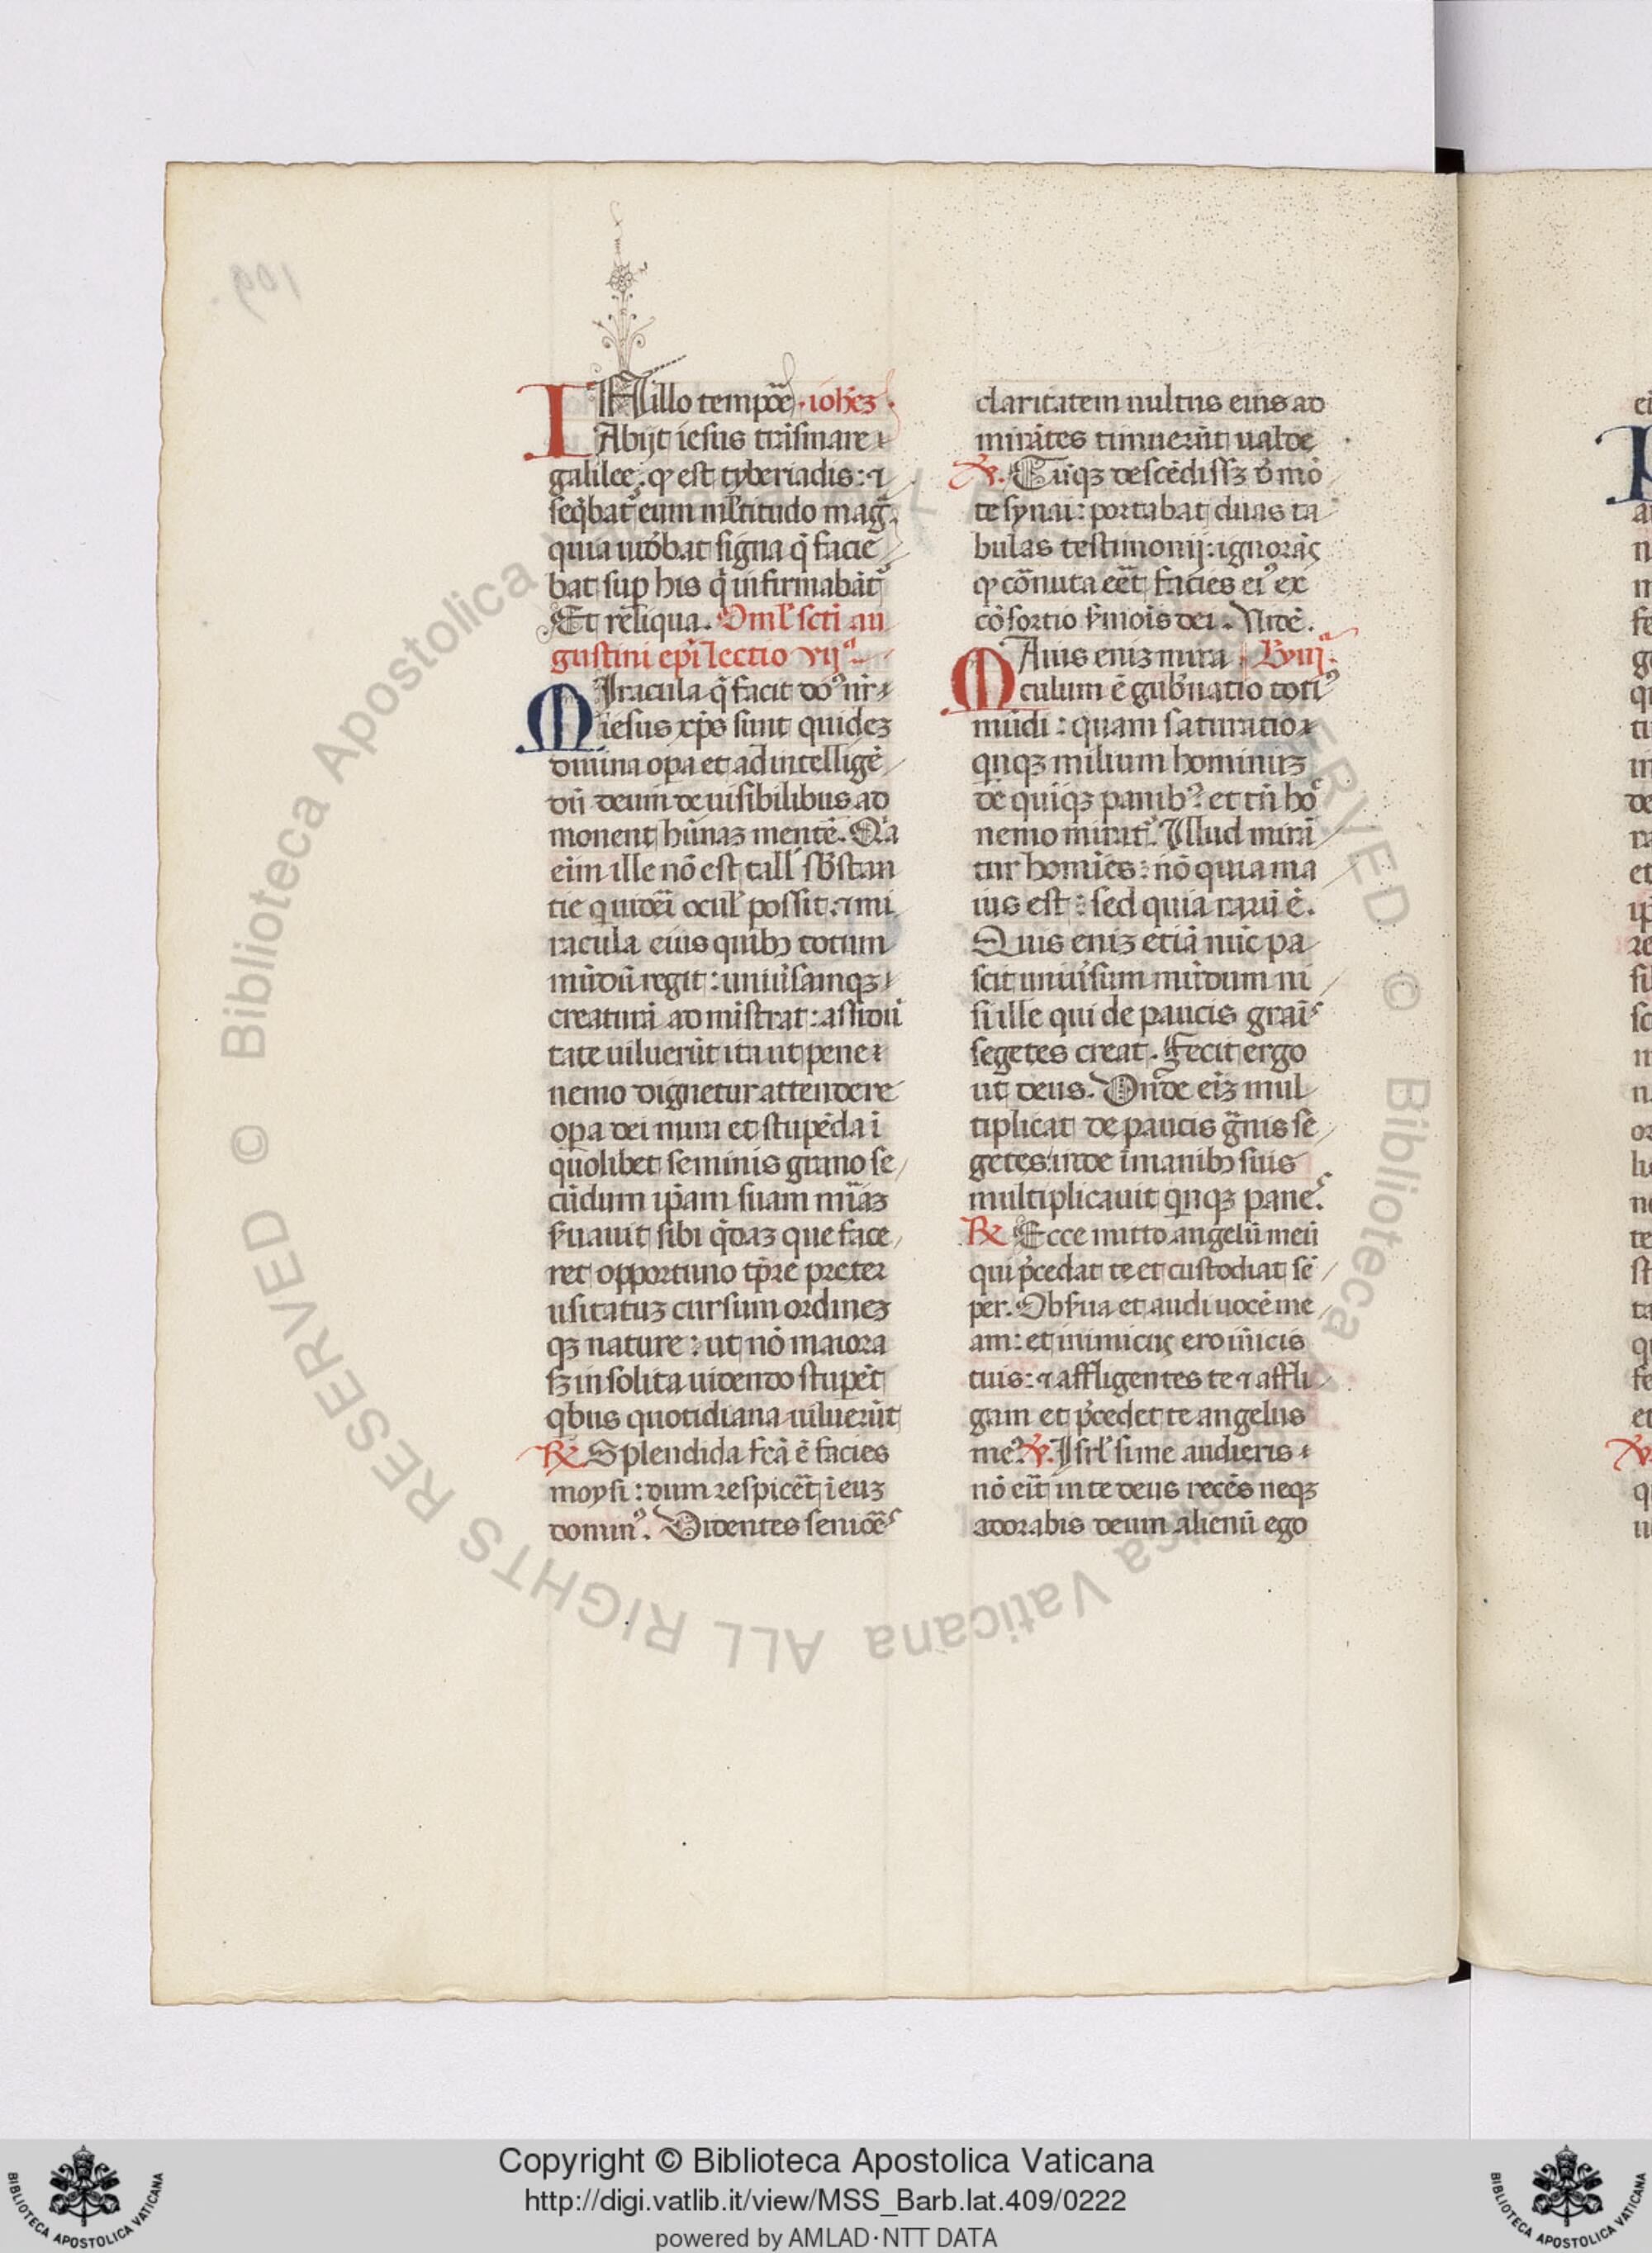 IN illo tempoꝛe. ioħes.
Abijt iesus trãsmare
galilee: qđ est tyberiadis: ⁊
seqˈbatˀ eum ml̃titudo mag̃
quia uidebat signa q̃ facie
bat sup his qˈ infirmabãtˀ
Et reliqua. Omlˈ scti au
gustini ep̃i lectio vijª.
MIracula q̃ facit doꝰ nr̃
iesus xp̃s sunt quidez
diuina opa et ad intelligẽ
dũ deum de uisibilibus ad
monent hũnaz mentẽ. Qa
eim ille nõ est tallˈ sb̃stan
tie q uideĩ oculˈ possit. ⁊ mi
racula eius quibꝫ totum
mũdũ regit: uniũsamqꝫ
creaturã admĩstrat: assidui
tate uiluerũt ita ut pene
nemo dignetur attendere
opa dei mira et stupẽda ĩ
quolibet seminis grano se
cũdum ip̃am suam mĩaz
s̃uauit sibi qˈdaz que face
ret opportuno tp̃re preter
usitatuz cursum ordinez
qꝫ nature: ut nõ maiora
sꝫ insolita uidendo stupẽt
qˈbus quotidiana uiluerũt
℟ Splendida fcã ẽ facies
moysi: dum respicẽt ĩ euz
dominꝰ. Uidentes senioẽs
claritatem uultus eius ad
mirãtes timuerũt ualde
℣. Cũqꝫ descẽdissꝫ đ mõ
te synai: portabat duas ta
bulas testimonij: ignorãs
qđ coˈnuta eẽt facies eiꝰ ex
cõsortio s̃mõis dei. Videˈ.
MAius eniz mira Lˈ viijª.
culum ẽ gub̃natio totiꝰ
mũdi: quam saturatio
qˈnqꝫ milium hominuꝫ
de quĩqꝫ panibꝰ: et tñ hoᶜ
nemo miratˀ. Illud mirã
tur homĩes: nõ quia ma
ius est: sed quia rarũ ẽ.
Quis eniz etiã nũc pa
scit uniũsum mũdum ni
si ille qui de paucis graĩs
segetes creat. Fecit ergo
ut deus. Unde eĩz mul
tiplicat de paucis g̃nis se
getes: inde ĩ manibꝫ suis
multiplicauit qˈnqꝫ panes.
℟ Ecce mitto angelũ meũ
qui p̃cedat te et custodiat sẽ
per. Obs̃ua et audi uocẽ me
am: et inimicus ero iñicis
tuis: ⁊ affligentes te ⁊ affli
gam et p̃cedet te angelus
meꝰ. ℣. Isrlˈ si me audieris
nõ eĩt in te deus recẽs neqꝫ
adorabis deum alienũ ego
Copyright © Biblioteca Apostolica Vaticana
http://digi.vatlib.it/view/MSS_Barb.lat.409/0222
powered by AMLAD·NTT DATA
BIBLIOTECA APOSTOLICA VATICANA
BIBLIOTECA APOSTOLICA VATICANA
© Biblioteca Apostolica Vaticana ALL RIGHTS RESERVED